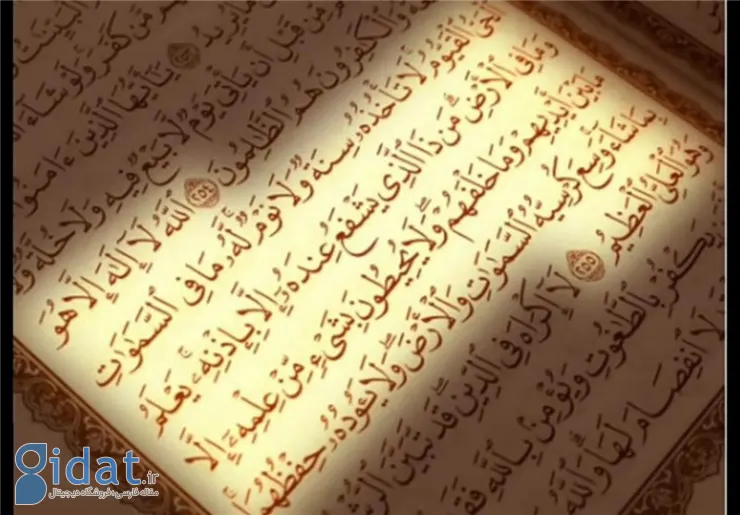 مَّن كَفَرَ وَلَوْ شَآءَ
مَا يُرِيدُ ٢٥٣ يَٰٓأَيُّهَا ٱلَّذِينَ ءَامَنُوٓا۟
مِّن قَبْلِ أَن يَأْتِىَ يَوْمٌ لَّا بَيْعٌ فِيهِ وَلَا خُلَّةٌ وَلَا
وَٱلْكَٰفِرُونَ هُمُ ٱلظَّٰلِمُونَ ٢٥٤ ٱللَّهُ لَآ إِلَٰهَ إِلَّا هُوَ
ٱلْحَىُّ ٱلْقَيُّومُ لَا تَأْخُذُهُۥ سِنَةٌ وَلَا نَوْمٌ لَّهُۥ مَا فِى ٱلسَّمَٰوَٰتِ
وَمَا فِى ٱلْأَرْضِ مَن ذَا ٱلَّذِى يَشْفَعُ عِندَهُۥٓ إِلَّا بِإِذْنِهِۦ يَعْلَمُ
مَا بَيْنَ أَيْدِيهِمْ وَمَا خَلْفَهُمْ وَلَا يُحِيطُونَ بِشَىْءٍ مِّنْ عِلْمِهِۦٓ إِلَّا
بِمَا شَآءَ وَسِعَ كُرْسِيُّهُ ٱلسَّمَٰوَٰتِ وَٱلْأَرْضَ وَلَا يَـُٔودُهُۥ حِفْظُهُمَا
وَهُوَ ٱلْعَلِىُّ ٱلْعَظِيمُ ٢٥٥ لَآ إِكْرَاهَ فِى ٱلدِّينِ قَد تَّبَيَّنَ
يَكْفُرْ بِٱلطَّٰغُوتِ وَيُؤْمِنۢ بِٱللَّهِ
لَا ٱنفِصَامَ لَهَا وَٱللَّهُ
gidat.ir
مقاله فارسی،فروشگاه دیجیتال